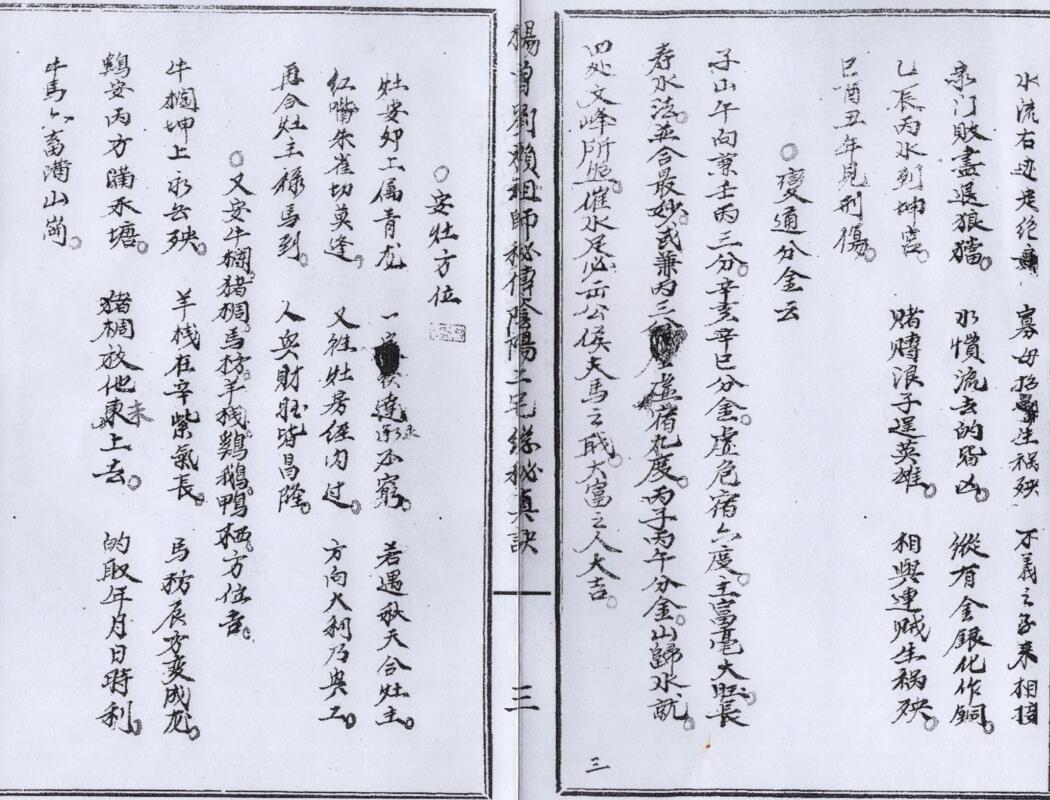 水流右边走绝 寡母招 生祸殃 不義之子来相接
家门敗盡退狼犺 水慣流去的皆凶 縱有金銀化作銅
乙辰丙水到坤宫 賭賻浪子逞英雄 相與連贼生祸殃
巳酉丑年見刑傷
變通分金云
子山午向兼壬丙三分辛亥辛巳分金虚危宿六度主富亳大旺長
寿水法並合最妙或兼丙三 虚宿九度丙子丙午分金山歸水就
四处文峰所照催水尾必出公侯夫馬之职大富之人大吉
三
楊曾劉賴祖師秘傳陰陽二宅総秘真訣
三
安灶方位
灶安卯上属青龙 一 達 不窮 若遇秋天合灶主
红嘴朱雀切莫逢 又难灶房经内过 方向大利乃典工
再合灶主禄馬到 人與財旺皆昌隆
又安牛棡猪棡馬枋羊栈鷄鵝鴨栖方位吉
牛棡坤上永云殃 羊栈在辛紫氣長 馬枋辰方变成龙
鷄安丙方滿禾塘 猪棡放他東未上去 的取年月日時利
牛馬六畜滿山崗